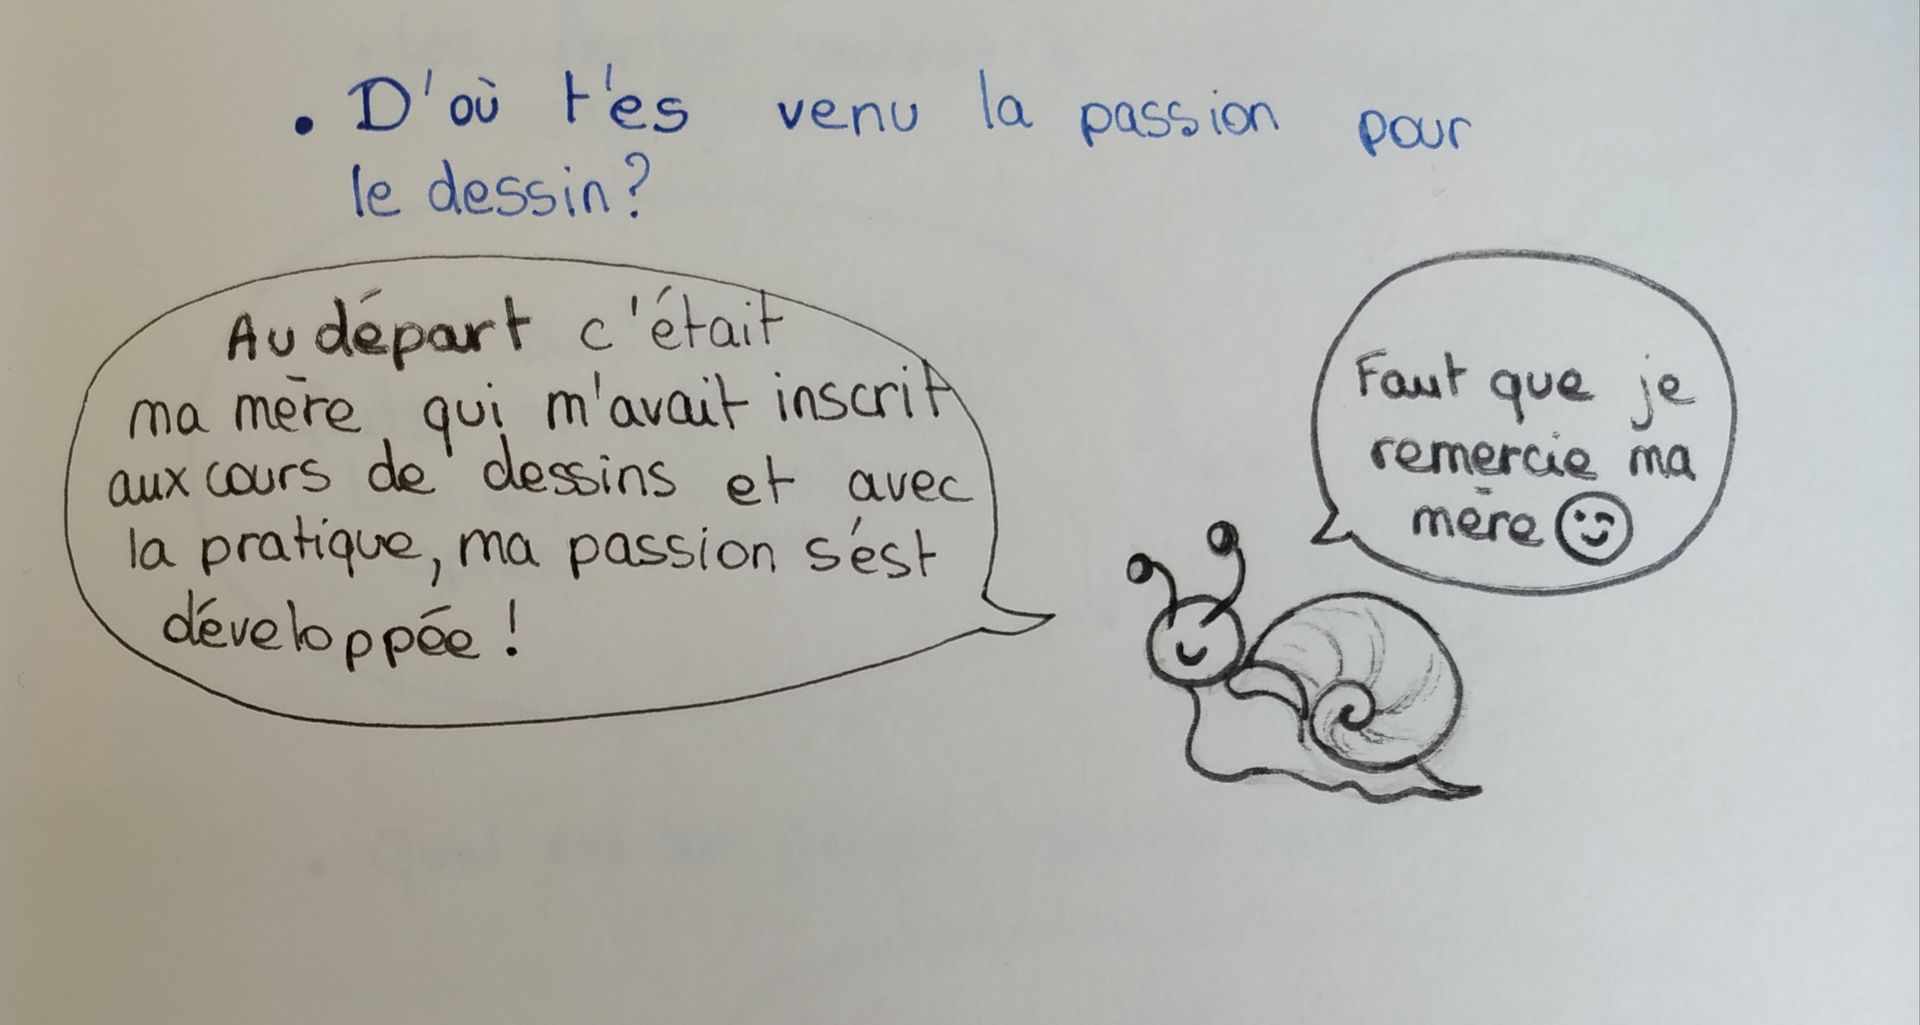 . D'où t'es venu la passion pour
le dessin?
Au départ c'était
ma mère qui m'avait inscrit
aux cours de dessins et avec
la pratique, ma passion s'est
développée !
Faut que je
remercie ma
mère